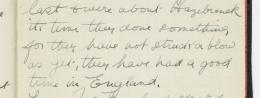 last & were about Hazebrouck
it, time they done something
for they have not struck a blow
as yet, they have had a good
time in England.